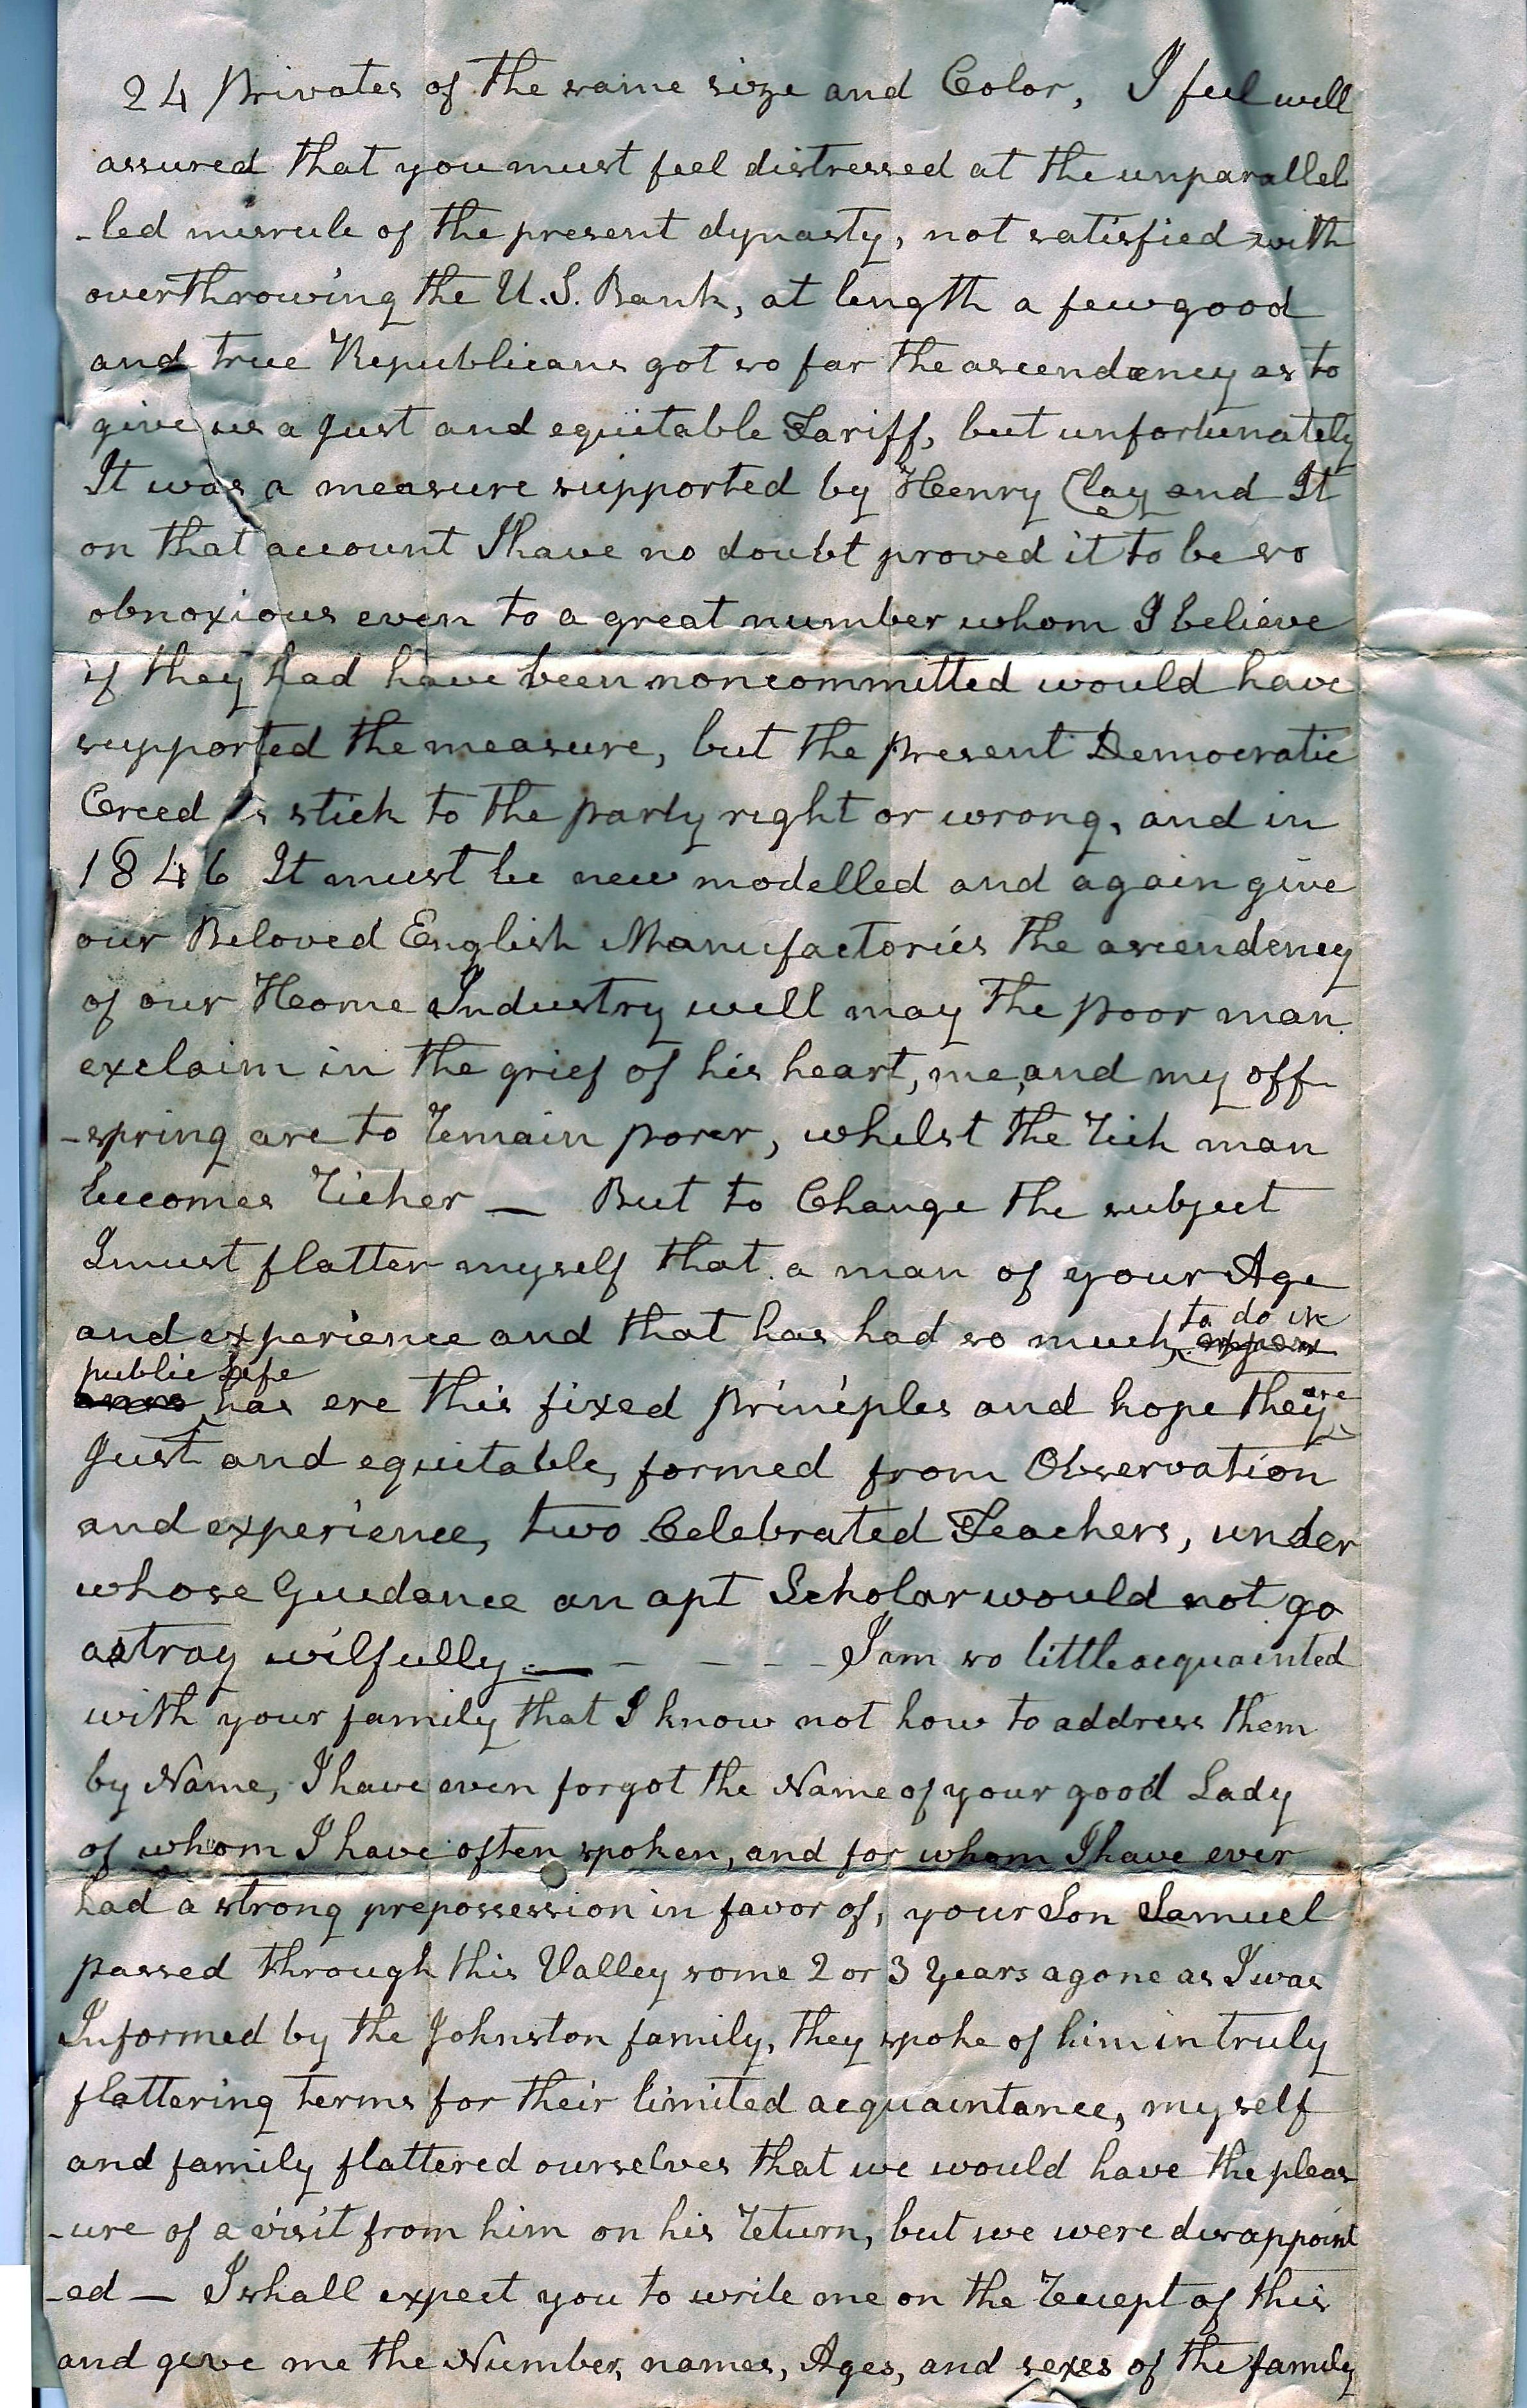 24 Privates of the same size and Color, I feel well
assured that you must feel distressed at the unparallel
-led misrule of the present dynasty, not satisfied with
overthrowing the U.S. Bank, at length a few good
and true Republicans got so far the ascendency as to
give us a Just and equitable Tariff, but unfortunately
It was a measure supported by Henry Clay and It
on that account I have no doubt proved it to be so
obnoxious even to a great number whom I believe
if they had have been noncommitted would have
supported the measure, but the present Democratic
Creed is stick to the party right or wrong, and in
1846 It must be new modelled and again give
our Beloved English Manufactories the ascendency
of our Home Industry well may the poor man
exclaim in the grief of his heart, me, and my off
-spring are to remain poor, whilst the rich man
becomes richer — But to Change the subject
I must flatter myself that a man of your Age
and experience and that has had so much to do in
public Life has ere this fixed principles and hope they are
Just and equitable, formed from Observation
and experience, two Celebrated Teachers, under
whose Guidance an apt Scholar would not go
astray wilfully — — — — I am so little acquainted
with your family that I know not how to address them
by Name, I have even forgot the Name of your good Lady
of whom I have often spoken, and for whom I have ever
had a strong prepossession in favor of, your Son Samuel
passed through this Valley some 2 or 3 Years agone as I was
Informed by the Johnston family, they spoke of him in truly
flattering terms for their limited acquaintance, myself
and family flattered ourselves that we would have the pleas
-ure of a visit from him on his return, but we were disappoint
-ed — I shall expect you to write me on the recept of this
and give me the Number, names, Ages, and sexes of the family